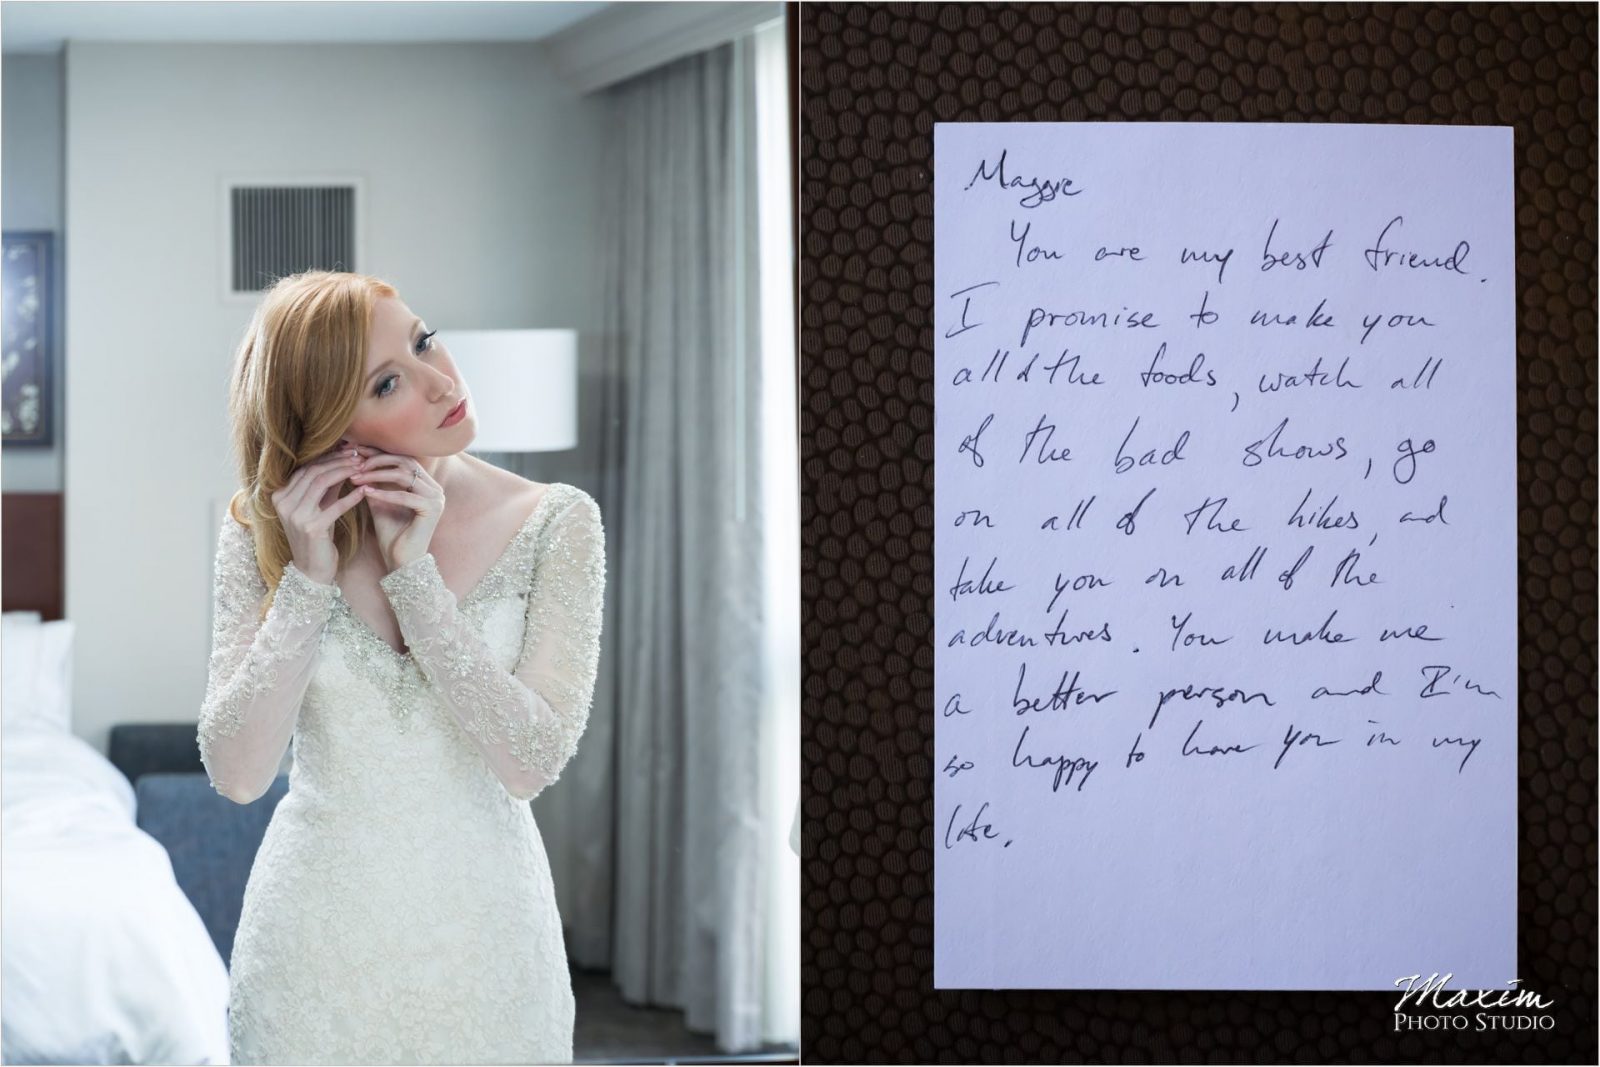 Maggie
You are my best friend.
I promise to make you
all of the foods, watch all
of the bad shows, go
on all of the hikes, and
take you on all of the
adventures. You make me
a better person and I'm
so happy to have you in my
life.
Maxim
PHOTO STUDIO